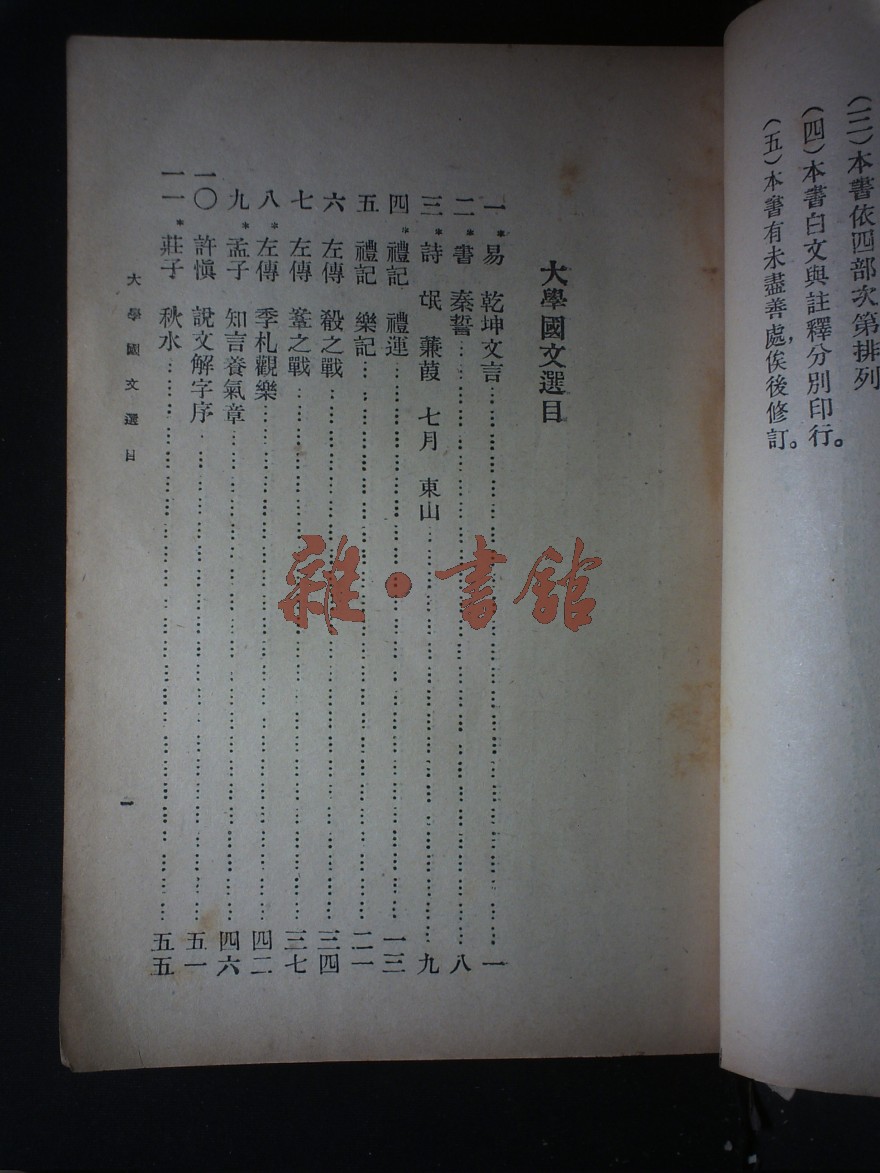 (三)本書依四部次第排列
(四)本書白文與註釋分別印行。
(五)本書有未盡善處,俟後修訂。
大學國文選目
一 *易 乾坤文言……一
二 *書 秦誓……八
三 *詩 氓 蒹葭 七月 東山……九
四 *禮記 禮運……一三
五 禮記 樂記……二一
六 左傳 殽之戰……三四
七 左傳 鞌之戰……三七
八 *左傳 季札觀樂……四二
九 *孟子 知言養氣章……四六
一〇 許慎 說文解字序……五一
一一 *莊子 秋水……五五
大學國文選目
一
雜·書館